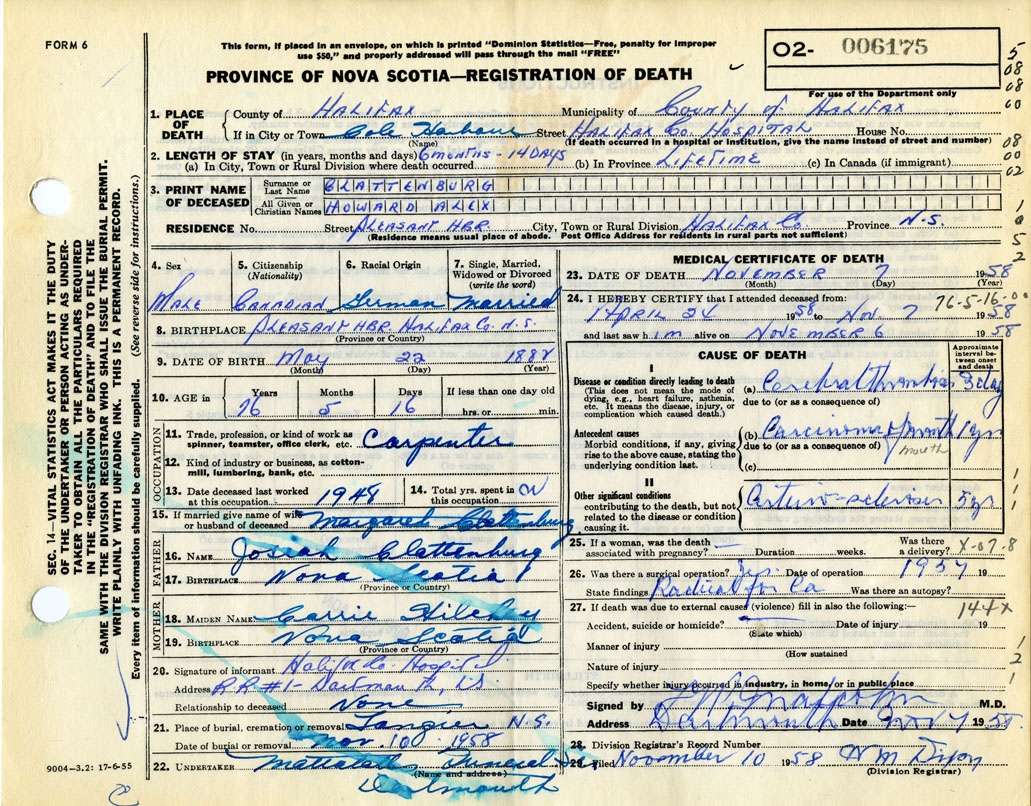 FORM 6
This form, if placed in an envelope, on which is printed "Dominion Statistics—Free, penalty for improper
use $50," and properly addressed will pass through the mail "FREE"
PROVINCE OF NOVA SCOTIA—REGISTRATION OF DEATH
O2- 006175
For use of the Department only
1. PLACE OF DEATH
County of HALIFAX Municipality of County of HALIFAX
If in City or Town Cole Harbour Street HALIFAX Co. HOSPITAL House No.
(Name) (If death occurred in a hospital or institution, give the name instead of street and number)
2. LENGTH OF STAY (in years, months and days) 6 MONTHS - 14 DAYS
(a) In City, Town or Rural Division where death occurred (b) In Province LIFETIME (c) In Canada (if immigrant)
3. PRINT NAME OF DECEASED
Surname or Last Name CLATTENBURG
All Given or Christian Names HOWARD ALEX
RESIDENCE No. Street PLEASANT HBR City, Town or Rural Division HALIFAX Co Province N.S.
(Residence means usual place of abode. Post Office Address for residents in rural parts not sufficient)
4. Sex Male
5. Citizenship (Nationality) Canadian
6. Racial Origin German
7. Single, Married, Widowed or Divorced (write the word) Married
8. BIRTHPLACE PLEASANT HBR. HALIFAX Co. N.S.
(Province or Country)
9. DATE OF BIRTH May 22 1882
(Month) (Day) (Year)
10. AGE in Years Months Days If less than one day old
76 5 16 hrs. or min.
OCCUPATION
11. Trade, profession, or kind of work as spinner, teamster, office clerk, etc. Carpenter
12. Kind of industry or business, as cotton-mill, lumbering, bank, etc.
13. Date deceased last worked at this occupation 1948
14. Total yrs. spent in this occupation
15. If married give name of wife or husband of deceased Margaret Clattenburg
FATHER
16. NAME Josiah Clattenburg
17. BIRTHPLACE Nova Scotia
(Province or Country)
MOTHER
18. MAIDEN NAME Carrie Hilchey
19. BIRTHPLACE Nova Scotia
(Province or Country)
20. Signature of informant Halifax Co. Hospital
Address R.R #1- Dartmouth, N.S.
Relationship to deceased None
21. Place of burial, cremation or removal Tangier N.S.
Date of burial or removal Nov 10, 1958
22. UNDERTAKER Mattatall Funeral
(Name and address)
Dartmouth
MEDICAL CERTIFICATE OF DEATH
23. DATE OF DEATH NOVEMBER 7 1958
(Month) (Day) (Year)
24. I HEREBY CERTIFY that I attended deceased from:
APRIL 24 1958 to Nov. 7 1958
76-5-16-00
and last saw him alive on NOVEMBER 6 1958
CAUSE OF DEATH
Approximate interval between onset and death
I
Disease or condition directly leading to death
(This does not mean the mode of dying, e.g., heart failure, asthenia, etc. It means the disease, injury, or complication which caused death.)
(a) Cerebral thrombosis 3 day
due to (or as a consequence of)
Antecedent causes
Morbid conditions, if any, giving rise to the above cause, stating the underlying condition last.
(b) Carcinoma of mouth 1 yr
due to (or as a consequence of) mouth
(c)
II
Other significant conditions
contributing to the death, but not related to the disease or condition causing it.
Arterio-sclerosis 5 yr
25. If a woman, was the death associated with pregnancy? Duration weeks. Was there a delivery?
X-07.8
26. Was there a surgical operation? Yes Date of operation 1957 19
State findings Radical for Ca Was there an autopsy?
27. If death was due to external causes (violence) fill in also the following:—
144X
Accident, suicide or homicide? Date of injury 19
(State which)
Manner of injury
(How sustained
Nature of injury
Specify whether injury occurred in industry, in home, or in public place
Signed by M.D.
Address Dartmouth Date Nov 7 1958
28. Division Registrar's Record Number
29. Filed November 10 1958 N M Dixon
(Division Registrar)
SEC. 14—VITAL STATISTICS ACT MAKES IT THE DUTY
OF THE UNDERTAKER OR PERSON ACTING AS UNDER-
TAKER TO OBTAIN ALL THE PARTICULARS REQUIRED
IN THE "REGISTRATION OF DEATH" AND TO FILE THE
SAME WITH THE DIVISION REGISTRAR WHO SHALL ISSUE THE BURIAL PERMIT.
WRITE PLAINLY WITH UNFADING INK. THIS IS A PERMANENT RECORD.
Every item of information should be carefully supplied. (See reverse side for instructions.)
9004—3.2: 17-6-55
5
08
08
00
08
00
02
1
5
2
1
1
1
1
2
1